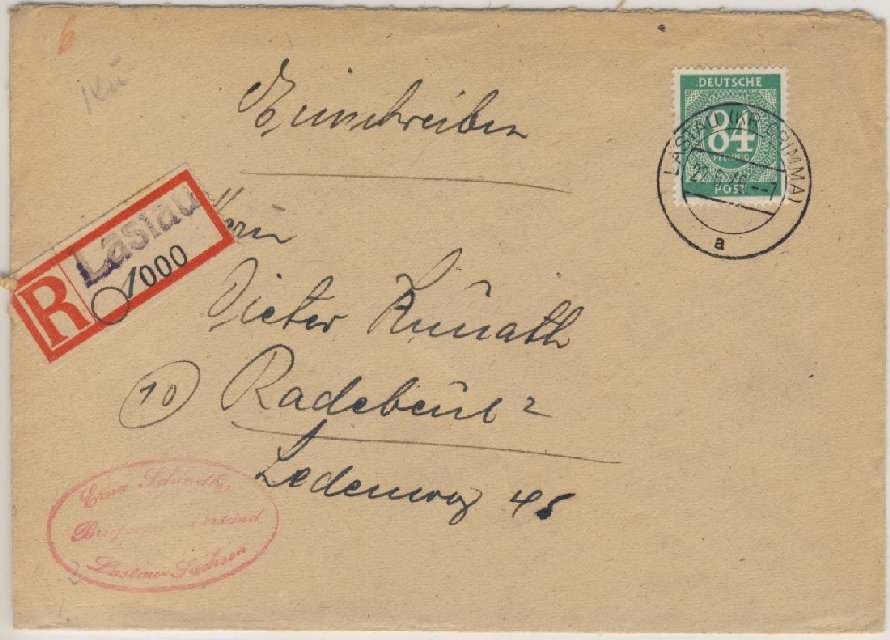 6
Kü
Einschreiben
DEUTSCHE
84
PFENNIG
POST
LASTAU (KR GRIMMA)
a
R Lastau
1000
Herrn
Dieter
(10) Radebeul 2
Ledenweg 45
Erna Schindler
Lastau-Sachsen